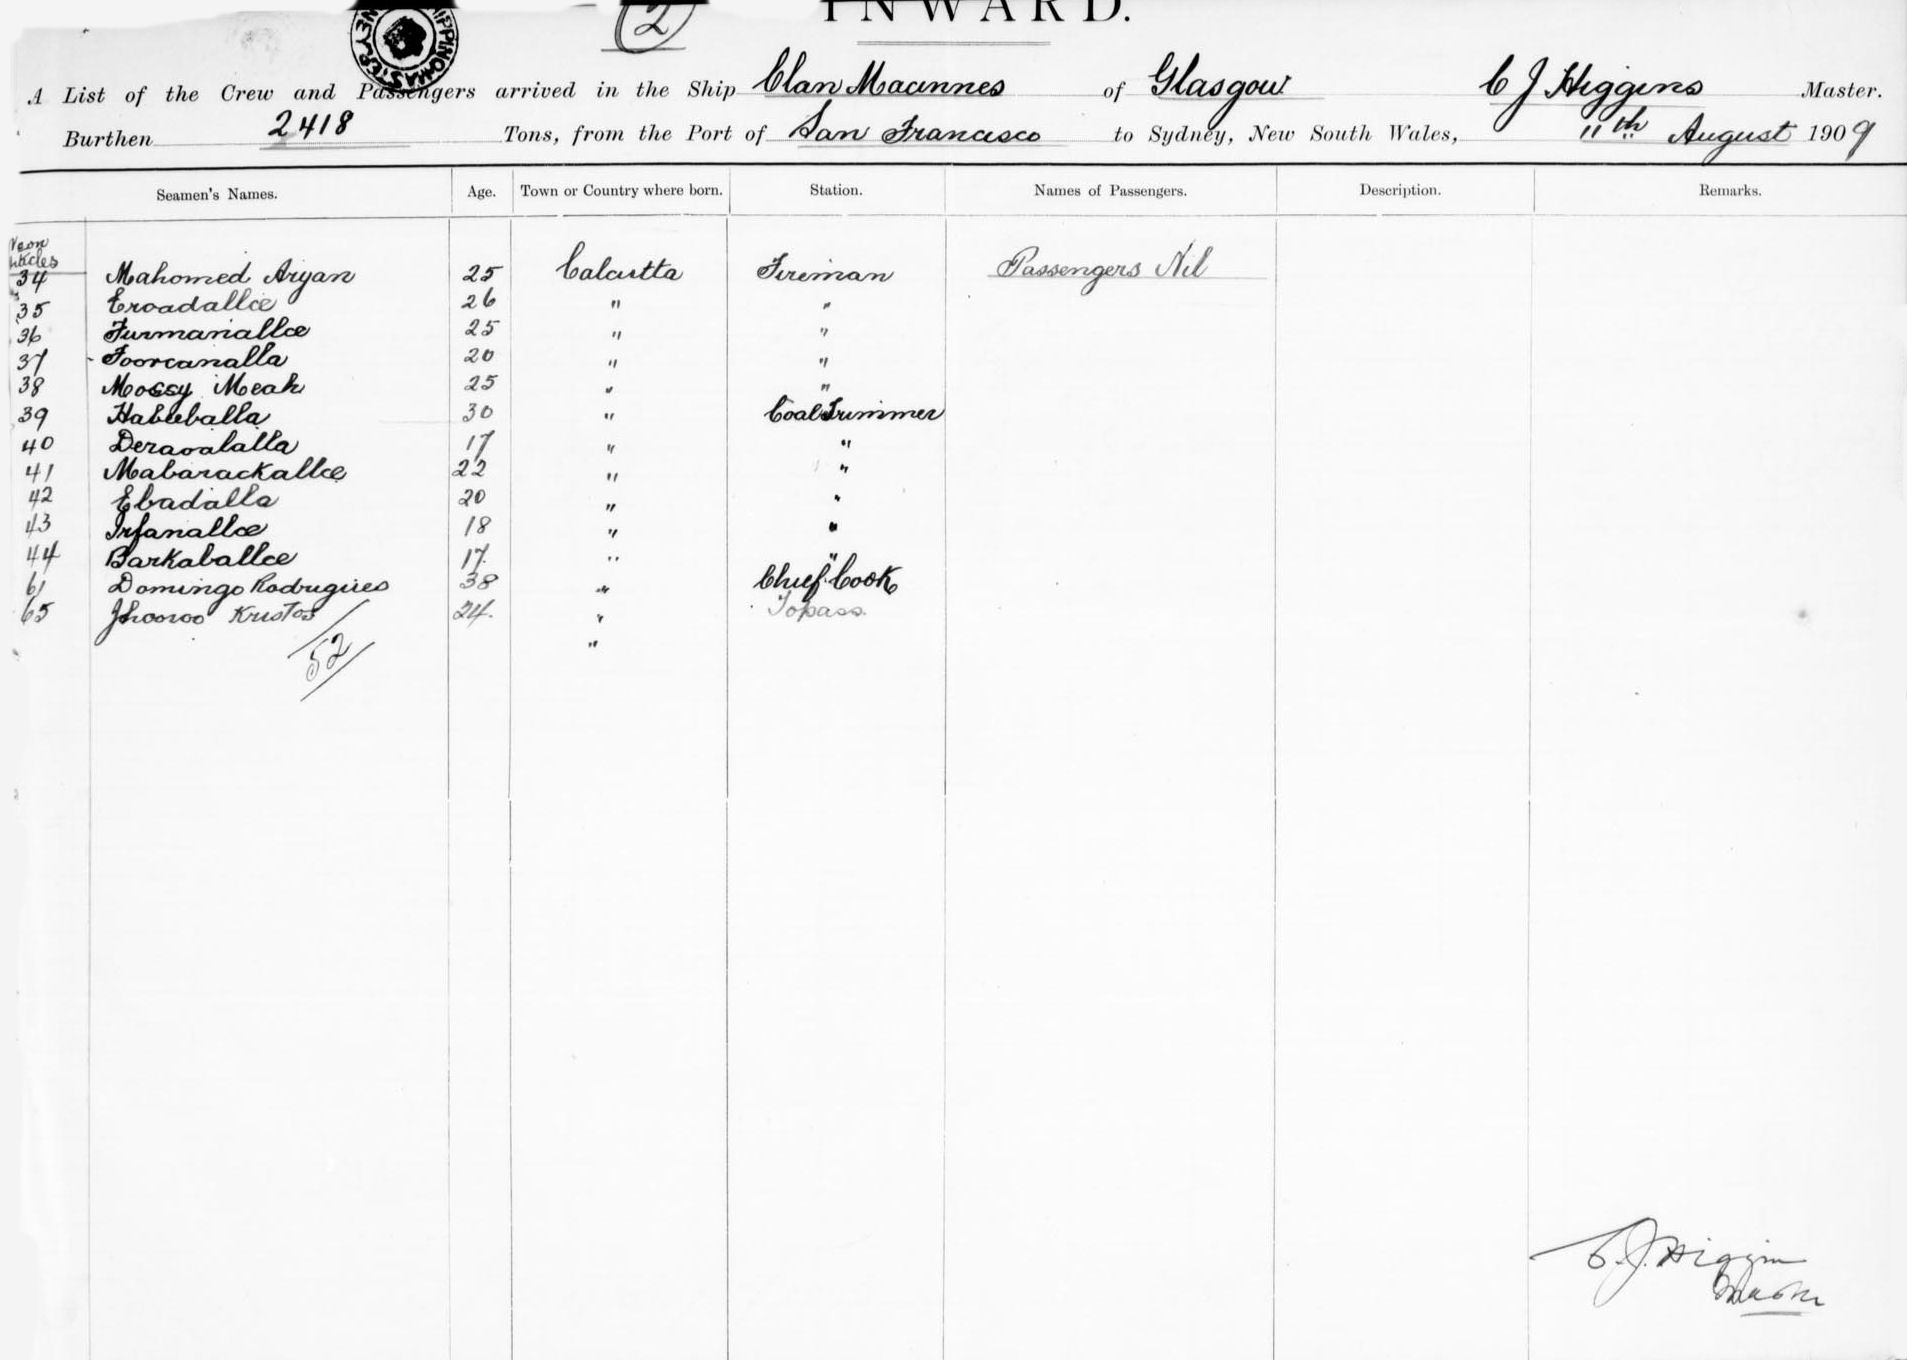 (2)
INWARD.
A List of the Crew and Passengers arrived in the Ship Clan Macinnes of Glasgow C J Higgins Master.
Burthen 2418 Tons, from the Port of San Francisco to Sydney, New South Wales, 11th August 1909
Seamen's Names. Age. Town or Country where born. Station. Names of Passengers. Description. Remarks.
34 Mahomed Aryan 25 Calcutta Fireman Passengers Nil
35 Eroadallee 26 " "
36 Furmanallee 25 " "
37 Foorcanalla 20 " "
38 Mossy Meah 25 " "
39 Habeeballa 30 " Coal Trimmer
40 Derasalalla 17 " "
41 Mabarackallee 22 " "
42 Ebadalla 20 " "
43 Irfanallee 18 " "
44 Barkaballee 17 " "
61 Domingo Rodrigues 38 " Chief Cook
65 Kristos 24 " Topass
52 "
C. J. Higgins
Master